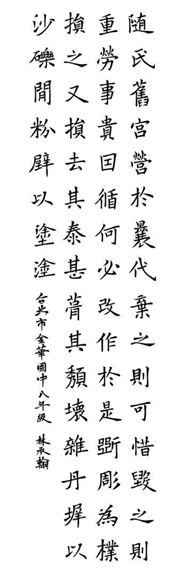 随氏舊宮營於曩代棄之則可惜毀之則
重勞事貴因循何必改作於是斵彫為樸
損之又損去其泰甚葺其頹壞雜丹墀以
沙礫間粉壁以塗塗
台北市金華國中八年級 林承翰